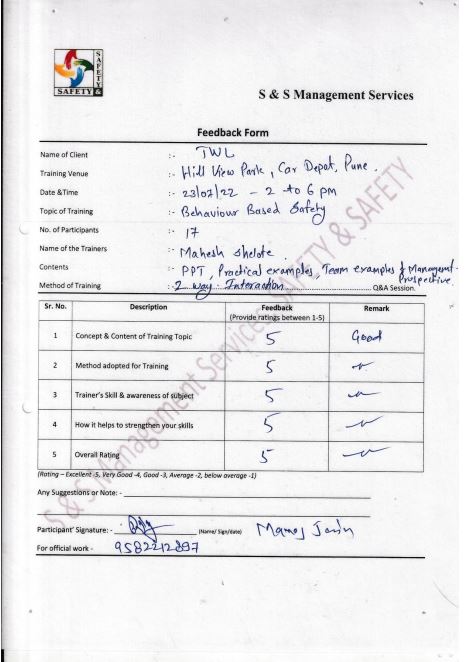 SAFETY
SAFETY &
S & S Management Services
Feedback Form
Name of Client :- TWL
Training Venue :- Hill View Park, Car Depot, Pune.
Date &Time :- 23/07/22 - 2 to 6 pm
Topic of Training :- Behaviour Based Safety
No. of Participants :- 17
Name of the Trainers :- Mahesh Shelote
Contents :- PPT, Practical examples, Team examples & Managemet. Prospective
Method of Training :- 2 way. Interaction ........ Q&A Session.
Sr. No. Description Feedback (Provide ratings between 1-5) Remark
1 Concept & Content of Training Topic 5 Good
2 Method adopted for Training 5
3 Trainer's Skill & awareness of subject 5
4 How it helps to strengthen your skills 5
5 Overall Rating 5
(Rating – Excellent -5, Very Good -4, Good -3, Average -2, below average -1)
Any Suggestions or Note: -
Participant' Signature: - (Name/ Sign/date) Manoj
For official work - 9582212897
S & S Management Services - SAFETY & SAFETY